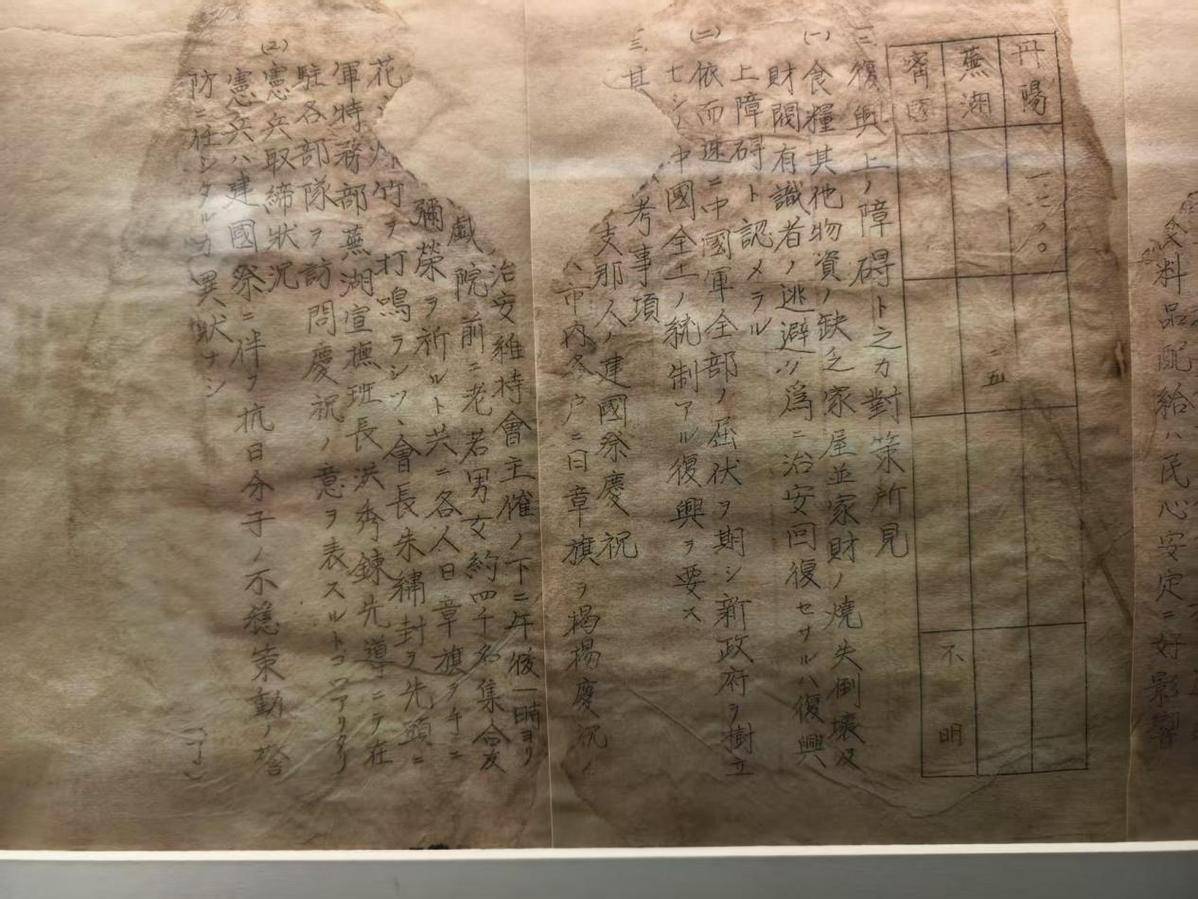 料品配給ハ民心安定ニ好影響
丹陽
蕪湖 二五
甯國 不明
二、復興上ノ障碍ト之カ對策所見
(一)食糧其他物資ノ缺乏家屋並家財ノ燒失倒壞及
財閥有識者ノ逃避ノ爲ニ治安回復セサルハ復興
上障碍ト認メラル
(二)依而速ニ中國軍全部ノ屈伏ヲ期シ新政府ヲ樹立
セシメ中國全土ノ統制アル復興ヲ要ス
三、其 考事項
支那人ノ建國祭慶祝
市内各戸ニ日章旗ヲ揭揚慶祝ノ
治安維持會主催ノ下ニ午後一時ヨリ
戯院前ニ老若男女約四千名集合
彌榮ヲ祈ルト共ニ各人日章旗ヲ手ニ
花 爆竹ヲ打鳴ラシツ、會長朱繡封ヲ先頭ニ
軍特務部蕪湖宣撫班長洪秀錬先導ニテ在
駐各部隊ヲ訪問慶祝ノ意ヲ表スルトコロアリタリ
(2)憲兵取締狀況
憲兵ハ建國祭ニ伴フ抗日分子ノ不穩策動ノ警
防ニ任シタルカ異狀ナシ
(了)